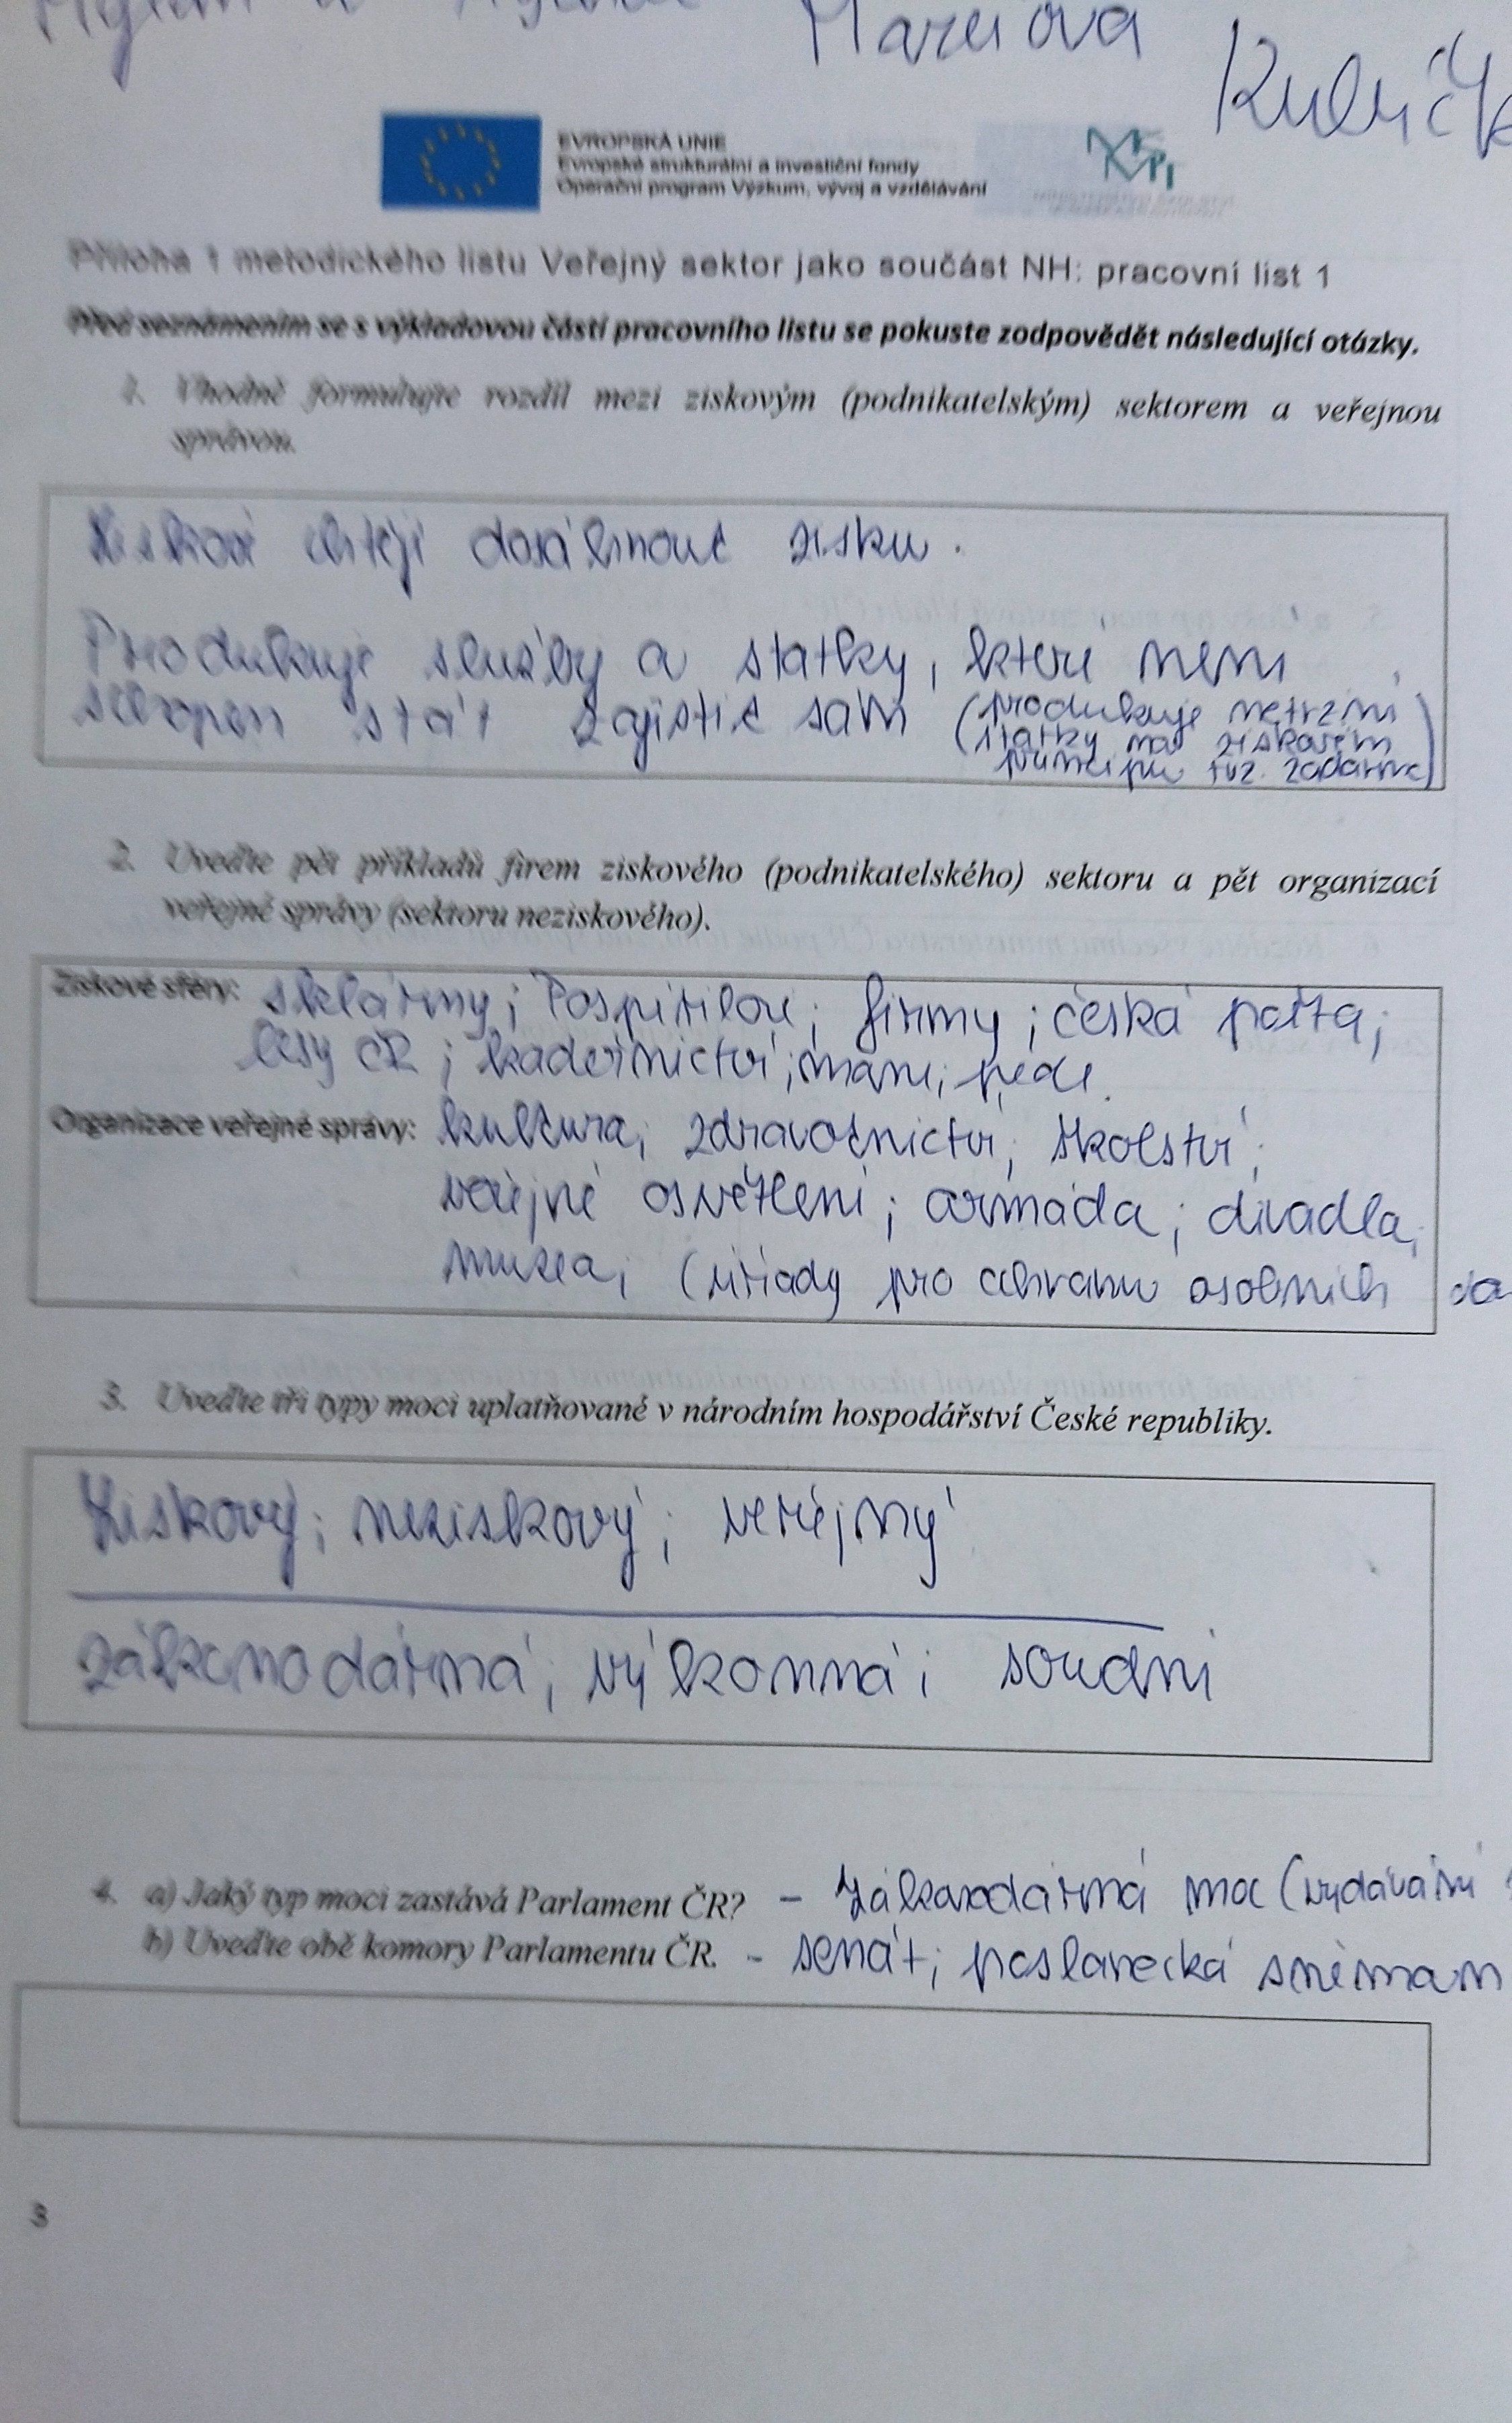 Marčiova
EVROPSKÁ UNIE
Evropské strukturální a investiční fondy
Operační program Výzkum, vývoj a vzdělávání
Příloha 1 metodického listu Veřejný sektor jako součást NH: pracovní list 1
Před seznámením se s výkladovou částí pracovního listu se pokuste zodpovědět následující otázky.
1. Vhodně formulujte rozdíl mezi ziskovým (podnikatelským) sektorem a veřejnou
správou.
Ziskoví chtějí dosáhnout zisku.
Produkuje služby a statky, které není
schopen stát zajistit sám (produkuje netržní
statky na ziskovém
principu tvz. zadarmo)
2. Uveďte pět příkladů firem ziskového (podnikatelského) sektoru a pět organizací
veřejné správy (sektoru neziskového).
Ziskové sféry: sklárny; Pospíšilové; firmy; česká pošta;
lesy ČR; kadeřnictví; mani, pedi
Organizace veřejné správy: kultura; zdravotnictví; školství;
veřejné osvětlení; armáda; divadla;
muzea; (úřady pro ochranu osobních
3. Uveďte tři typy moci uplatňované v národním hospodářství České republiky.
Ziskový; neziskový; veřejný
zákonodárná; výkonná; soudní
4. a) Jaký typ moci zastává Parlament ČR? - Zákonodárná moc (vydávání
b) Uveďte obě komory Parlamentu ČR. - senát; poslanecká sněmovn
3